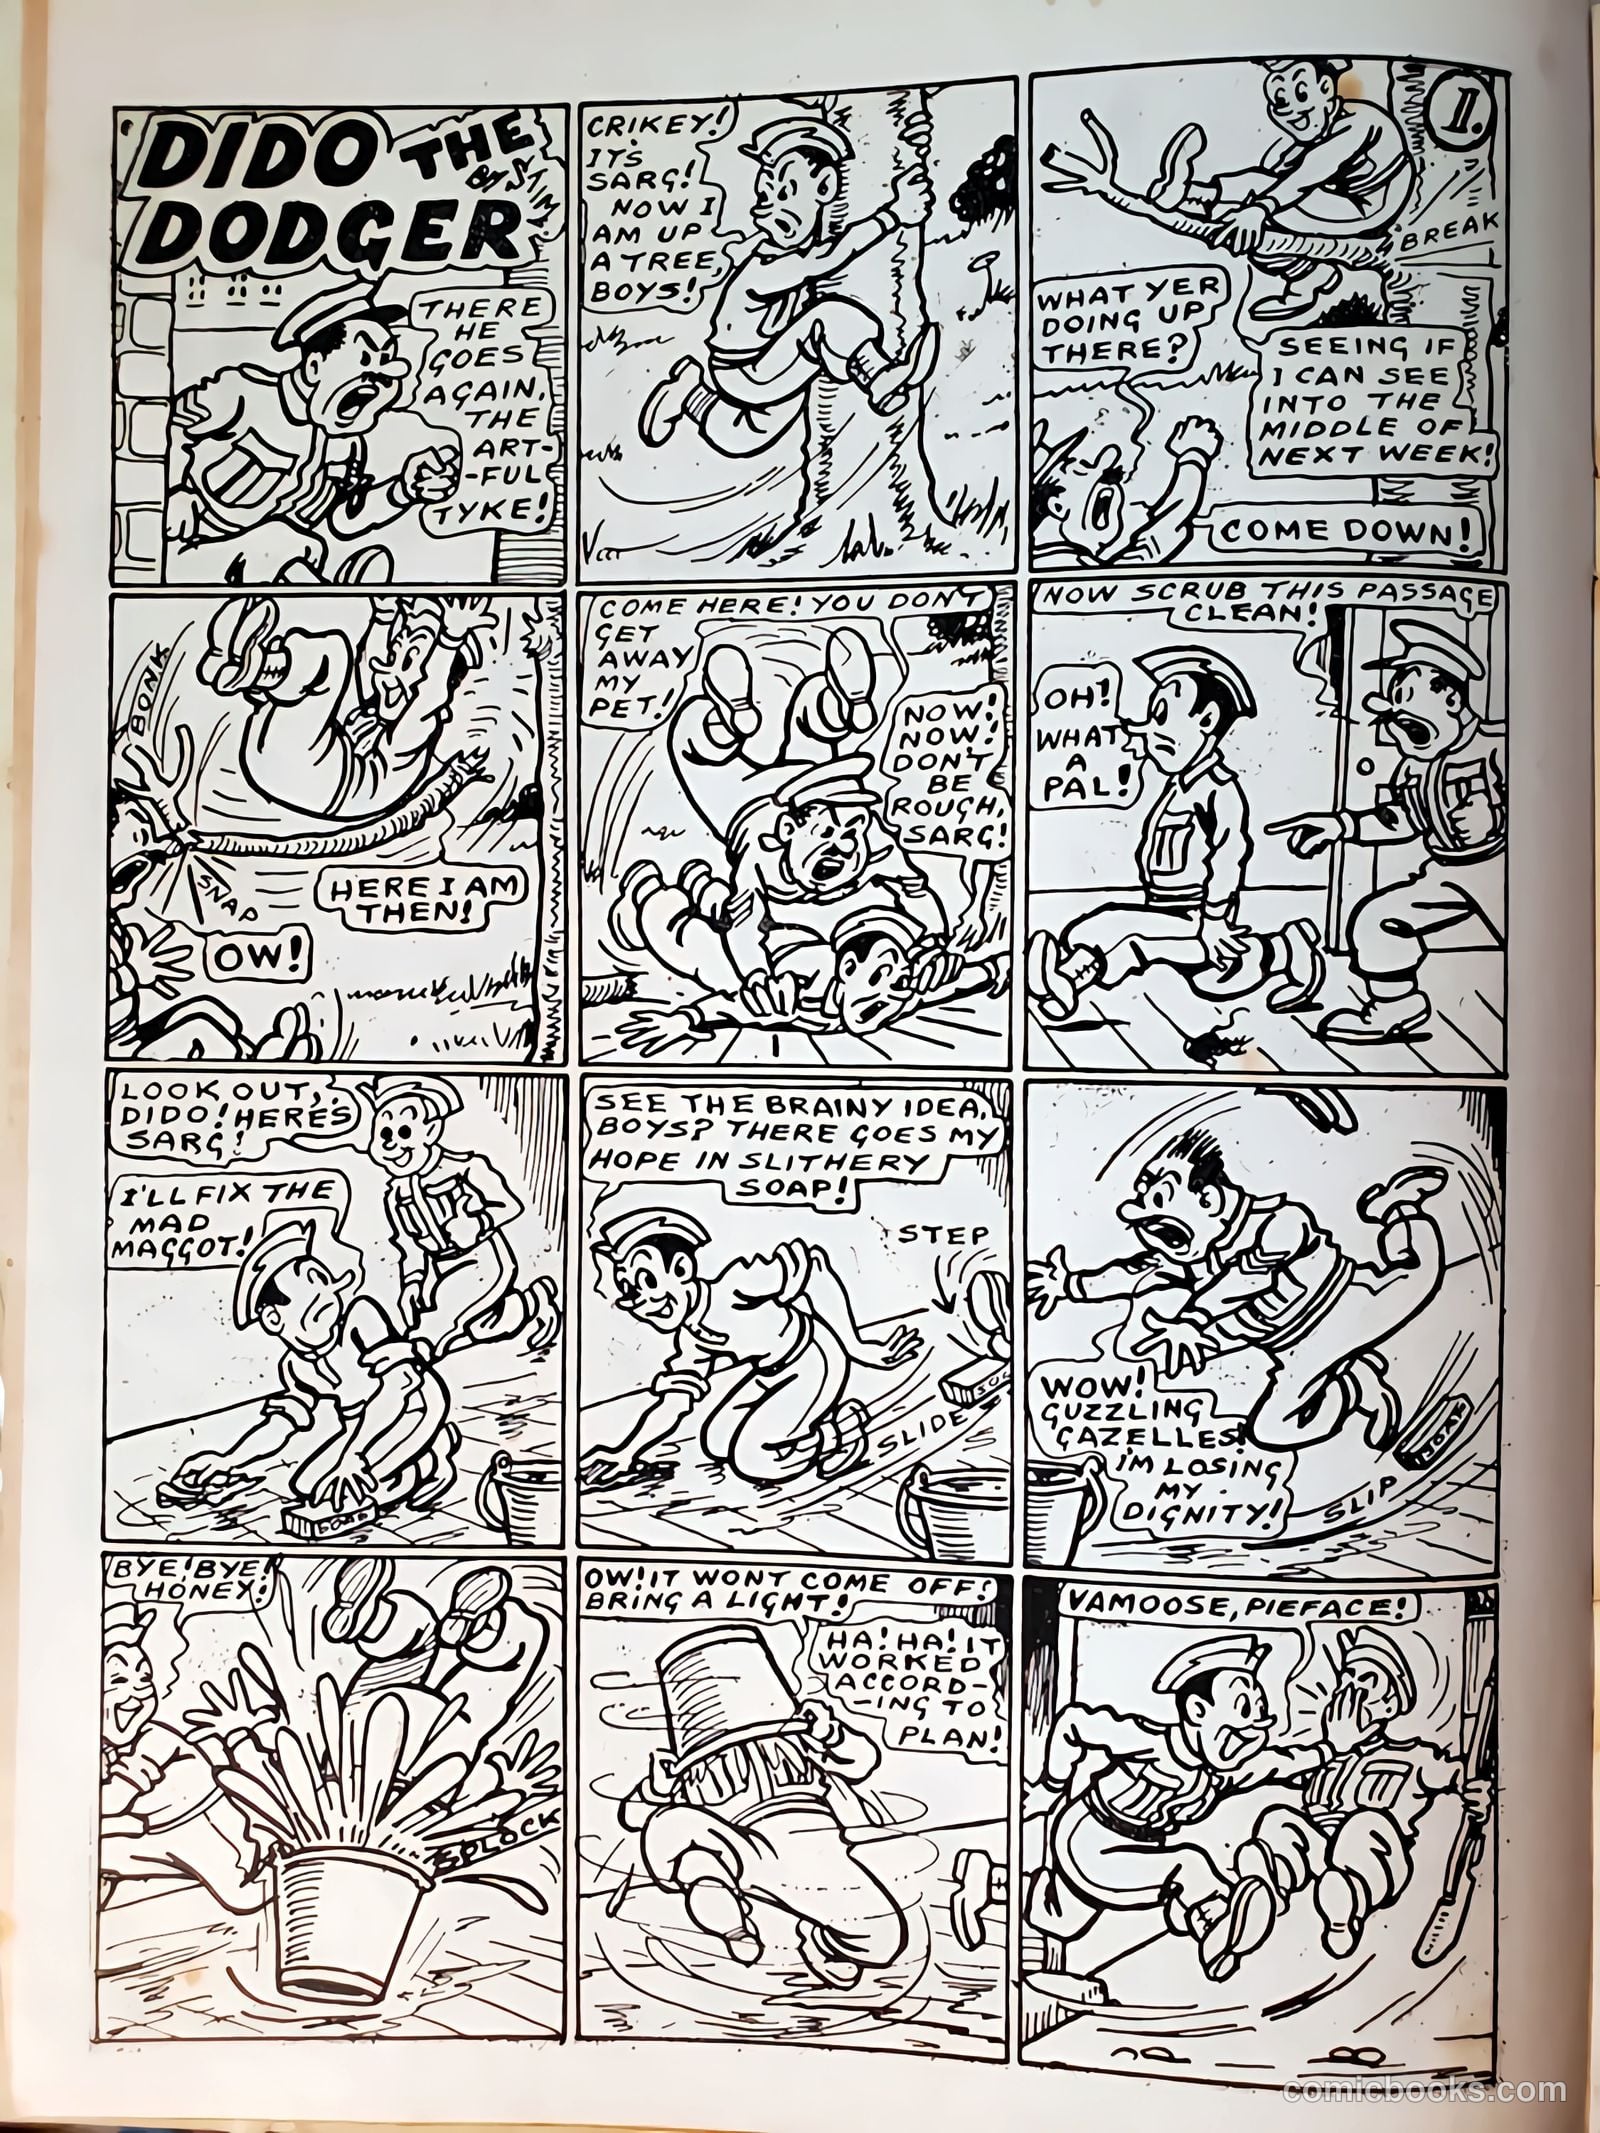 DIDO THE
DODGER
THERE
HE
GOES
AGAIN,
THE
ART-
-FUL
TYKE!
CRIKEY!
IT'S
SARG!
NOW I
AM UP
A TREE,
BOYS!
1.
BREAK
WHAT YER
DOING UP
THERE?
SEEING IF
I CAN SEE
INTO THE
MIDDLE OF
NEXT WEEK!
COME DOWN!
BONK
SNAP
HERE I AM
THEN!
OW!
COME HERE! YOU DON'T
GET
AWAY
MY
PET!
NOW!
NOW!
DON'T
BE
ROUGH,
SARG!
NOW SCRUB THIS PASSAGE
CLEAN!
OH!
WHAT
A
PAL!
LOOK OUT,
DIDO! HERE'S
SARG!
I'LL FIX THE
MAD
MAGGOT!
SOAP
SEE THE BRAINY IDEA,
BOYS? THERE GOES MY
HOPE IN SLITHERY
SOAP!
STEP
SLIDE
WOW!
GUZZLING
GAZELLES!
I'M LOSING
MY
DIGNITY!
SOAP
SLIP
BYE! BYE!
HONEY!
SPLOCK
OW! IT WONT COME OFF!
BRING A LIGHT!
HA! HA! IT
WORKED
ACCORD-
-ING TO
PLAN!
VAMOOSE, PIEFACE!
comicbooks.com